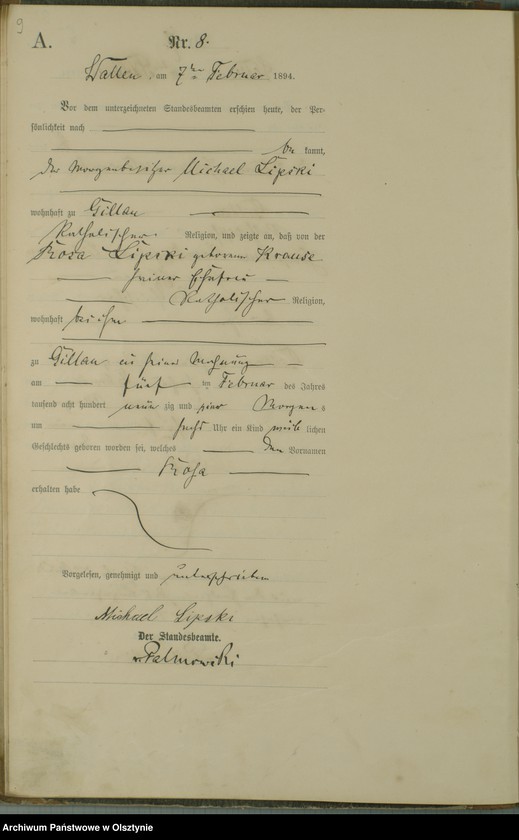 9
A.
Nr. 8.
Wallen, am 7ten Februar 1894.
Vor dem unterzeichneten Standesbeamten erschien heute, der Per-
sönlichkeit nach
be kannt,
der Morgenbesitzer Michael Lipski
wohnhaft zu Gillau
Katholischer Religion, und zeigte an, daß von der
Rosa Lipski geborene Krause
seiner Ehefrau
Katholischer Religion,
wohnhaft bei ihm
zu Gillau in seiner Wohnung
am fünf ten Februar des Jahres
tausend acht hundert neun zig und vier Morgen s
um sechs Uhr ein Kind weib lichen
Geschlechts geboren worden sei, welches den Vornamen
Rosa
erhalten habe
Vorgelesen, genehmigt und unterschrieben
Michael Lipski
Der Standesbeamte.
v. Palmowski
Archiwum Państwowe w Olsztynie